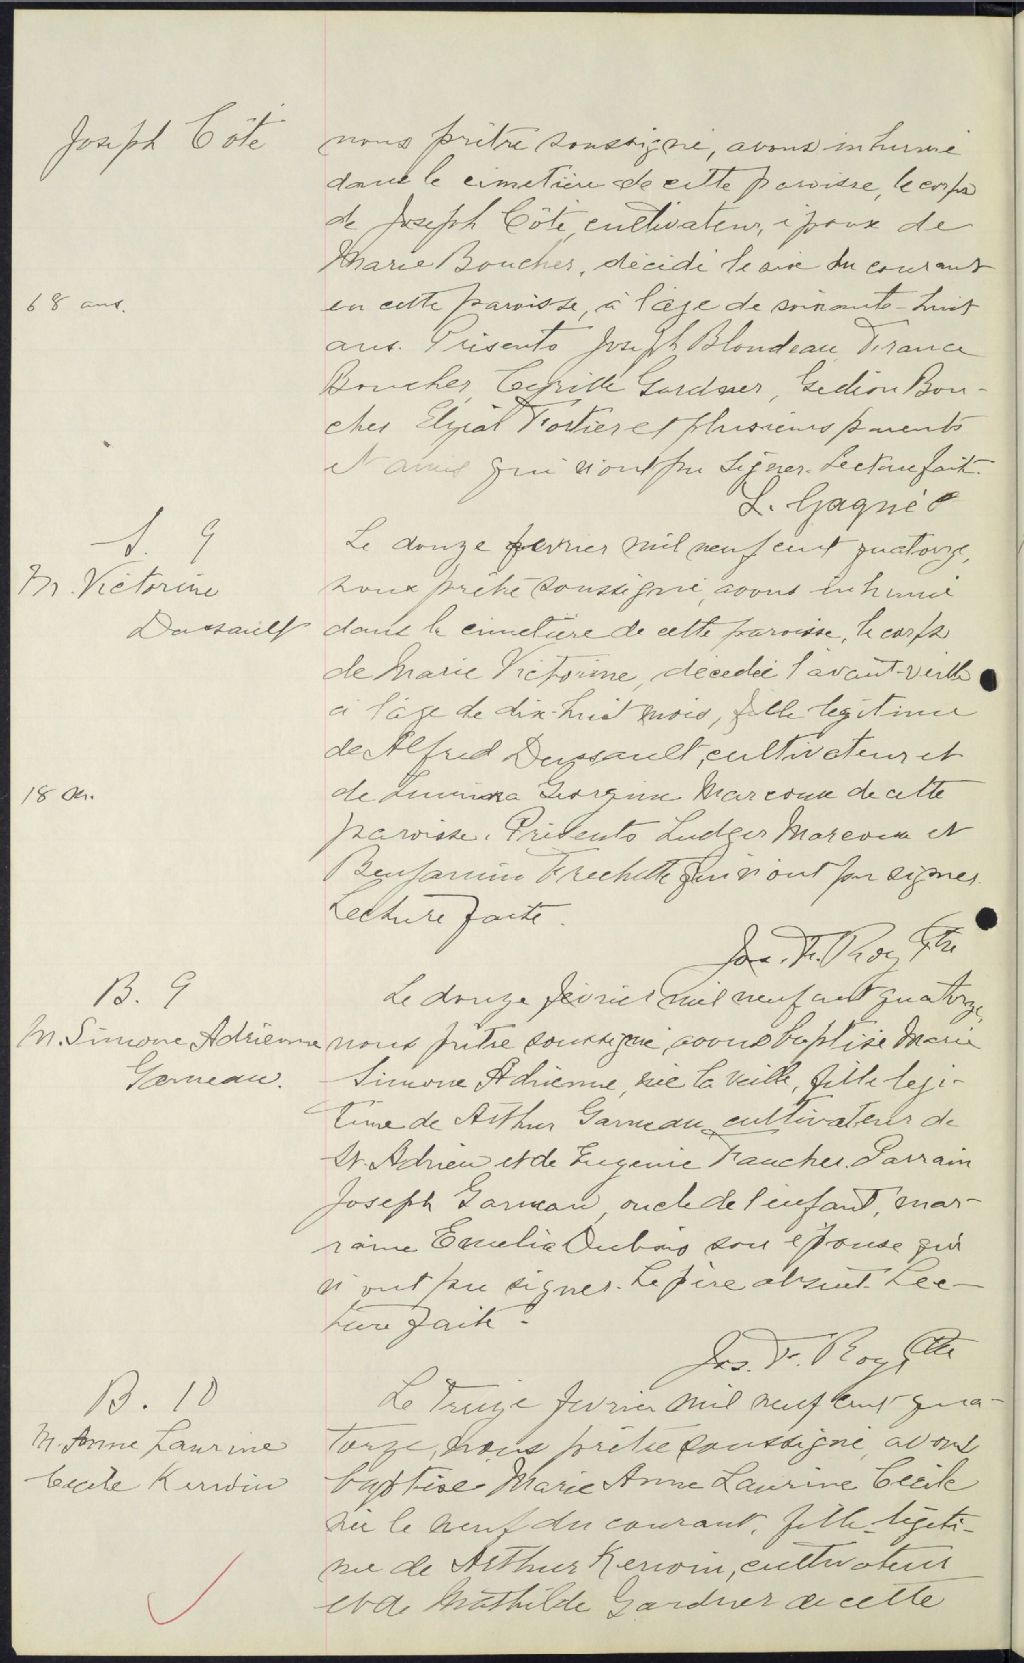 Joseph Côté
nous prêtre soussigné, avons inhumé
dans le cimetière de cette paroisse, le corps
de Joseph Côté, cultivateur, époux de
Marie Boucher, décédé le six du courant
68 ans.
en cette paroisse, à l'âge de soixante-huit
ans. Présents Joseph Blondeau, France
Boucher, Cyrille Gardner, Gédéon Bou-
cher Fortier et plusieurs parents
et amis qui n'ont pu signer. Lecture faite.
L. Gagné
S. 9
M. Victorine
Dussault
Le douze février mil neuf cent quatorze,
nous prêtre soussigné, avons inhumé
dans le cimetière de cette paroisse, le corps
de Marie Victorine, décédée l'avant-veille
à l'âge de dix-huit mois, fille légitime
de Alfred Dussault, cultivateur et
18 m.
de Georgina Marcoux de cette
paroisse. Présents Ludger Marcoux et
Benjamin Frechette qui n'ont pu signer.
Lecture faite.
Jos. F. Roy Ptre
B. 9
M. Simone Adrienne
Garneau.
Le douze février mil neuf cent quatorze,
nous prêtre soussigné, avons baptisé Marie
Simone Adrienne, née la veille, fille légi-
time de Arthur Garneau, cultivateur de
St. Adrien et de Eugenie Faucher. Parrain
Joseph Garneau, oncle de l'enfant, mar-
raine Emelia Dubois son épouse qui
n'ont pu signer. Le père absent. Lec-
ture faite.
Jos. F. Roy, Ptre
B. 10
M. Anne Laurine
Cecile Kerwin
Le treize février mil neuf cent qua-
torze, nous prêtre soussigné, avons
baptisé Marie Anne Laurine Cecile
née le neuf du courant, fille légiti-
me de Arthur Kerwin, cultivateur
et de Mathilde Gardner de cette